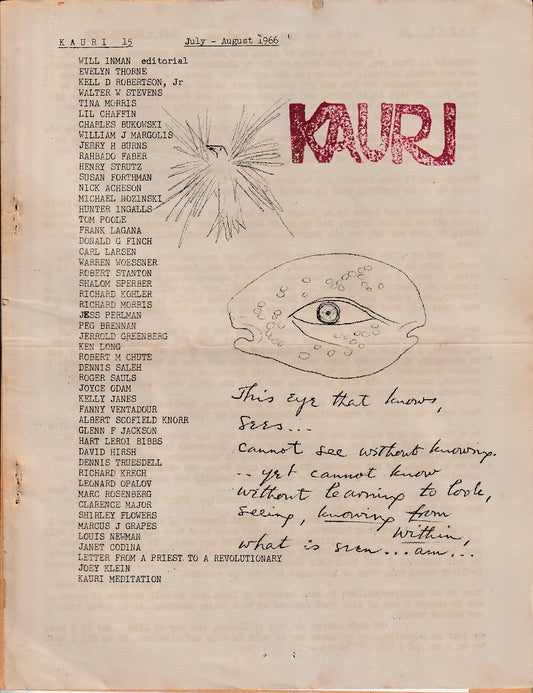 KAURI 15 July - August 1966
KAURI
WILL INMAN editorial
EVELYN THORNE
KELL D ROBERTSON, Jr
WALTER W STEVENS
TINA MORRIS
LIL CHAFFIN
CHARLES BUKOWSKI
WILLIAM J MARGOLIS
JERRY H BURNS
RAHBADO FABER
HENRY STRUTZ
SUSAN FORTHMAN
NICK ACHESON
MICHAEL NOZINSKI
HUNTER INGALLS
TOM POOLE
FRANK LAGANA
DONALD G FINCH
CARL LARSEN
WARREN WOESSNER
ROBERT STANTON
SHALOM SPERBER
RICHARD KOHLER
RICHARD MORRIS
JESS PERLMAN
PEG BRENNAN
JERROLD GREENBERG
KEN LONG
ROBERT M CHUTE
DENNIS SALEH
ROGER SAULS
JOYCE ODAM
KELLY JANES
FANNY VENTADOUR
ALBERT SCOFIELD KNORR
GLENN F JACKSON
HART LEROI BIBBS
DAVID HIRSH
DENNIS TRUESDELL
RICHARD KRECH
LEONARD OPALOV
MARC ROSENBERG
CLARENCE MAJOR
SHIRLEY FLOWERS
MARCUS J GRAPES
LOUIS NEWMAN
JANET CODINA
LETTER FROM A PRIEST TO A REVOLUTIONARY
JOEY KLEIN
KAURI MEDITATION
This eye that knows,
sees...
cannot see without knowing.
.. yet cannot know
without learning to look,
seeing, knowing from
within,
what is seen...am...